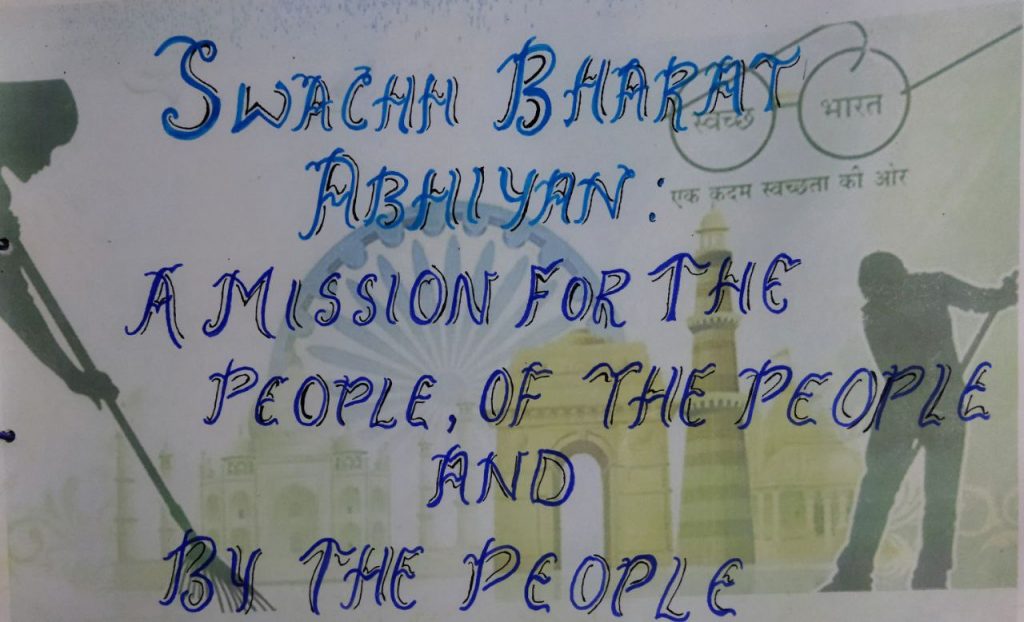 SWACHH BHARAT
स्वच्छ भारत
एक कदम स्वच्छता की ओर
ABHIYAN:
A MISSION FOR THE
PEOPLE, OF THE PEOPLE
AND
BY THE PEOPLE